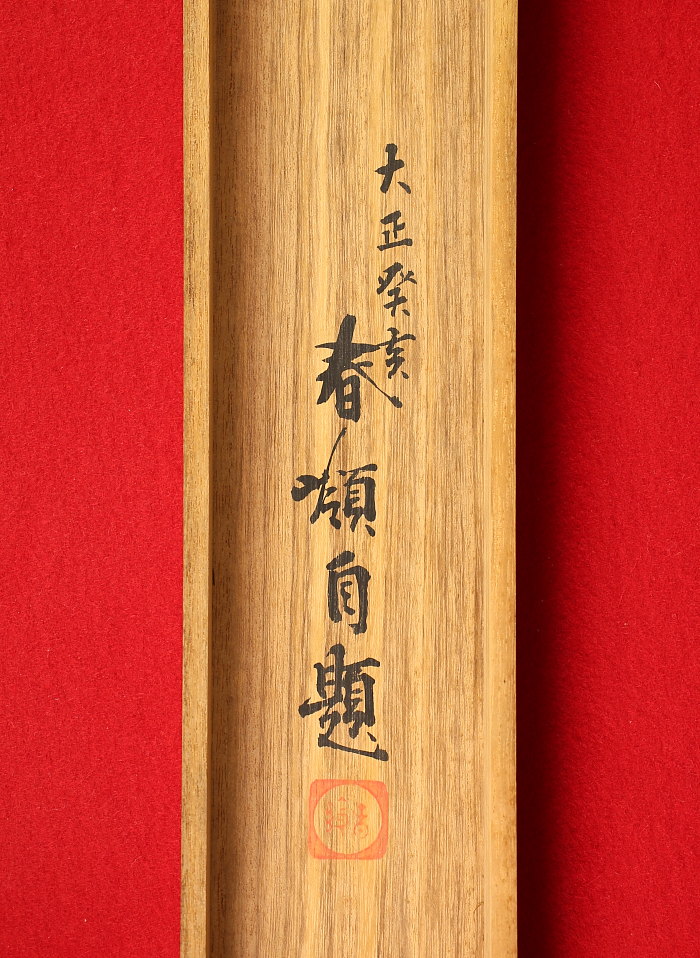 大正癸亥
春嶺自題